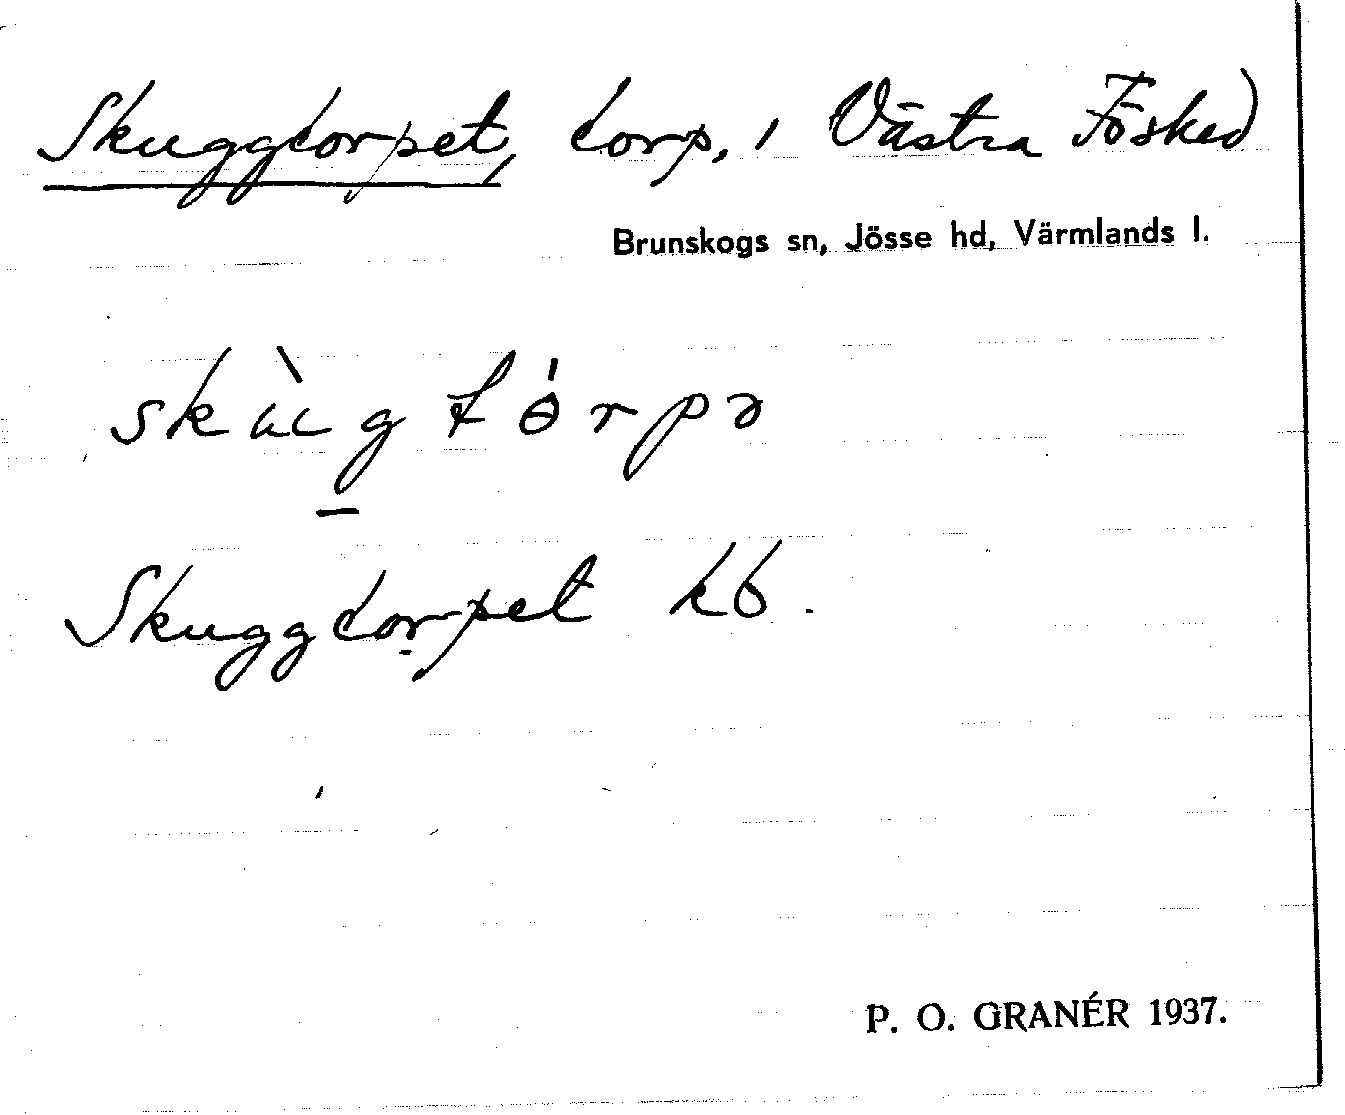 Skuggtorpet, torp, i Västra Fösked
Brunskogs sn, Jösse hd, Värmlands l.
skùg tɵ́rpə
Skuggtorpet kb.
P. O. GRANÉR 1937.